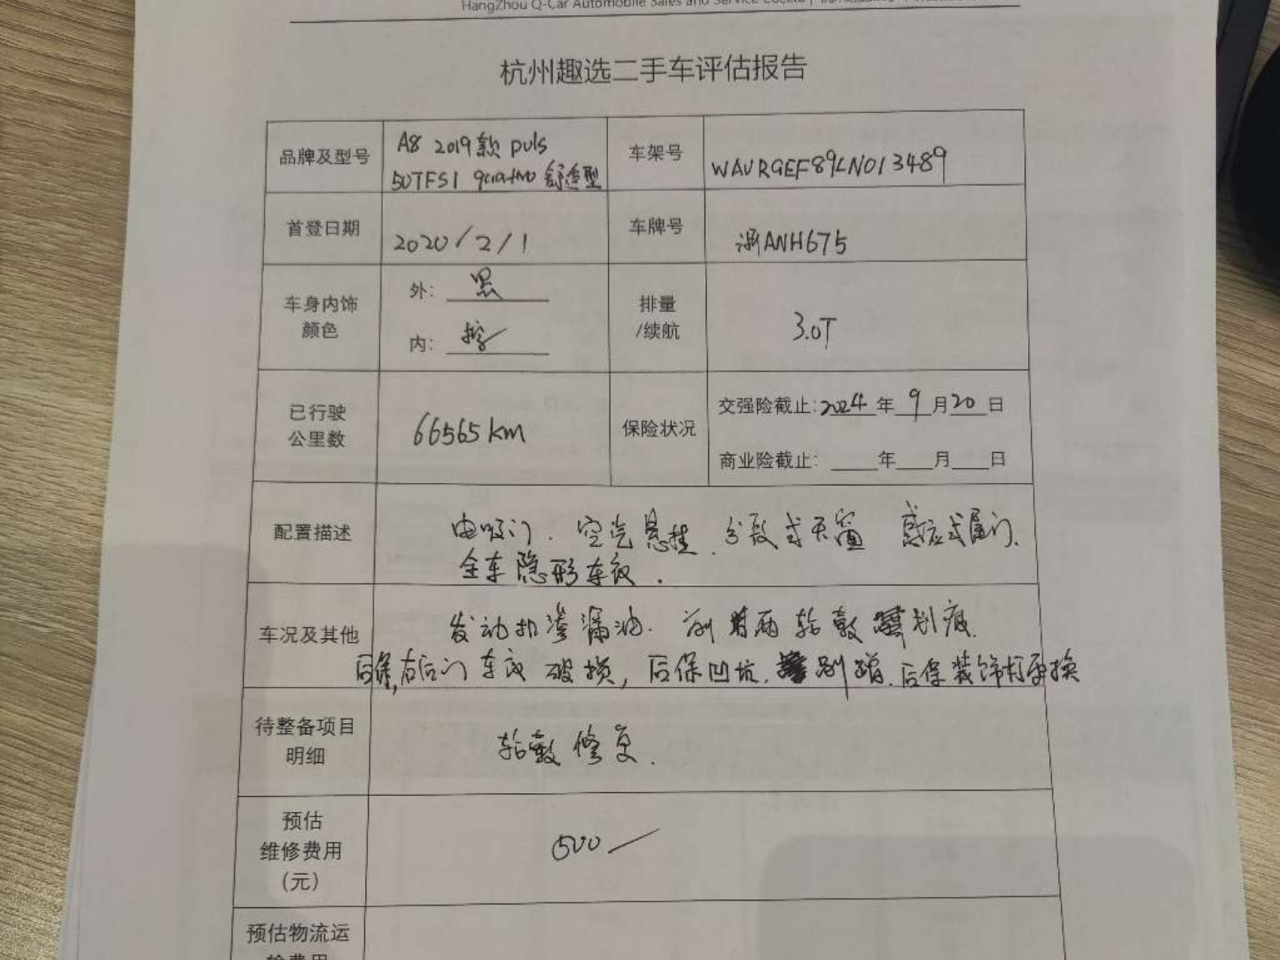 HangZhou Q-Car Automobile Sales and Service Co.,Ltd
杭州趣选二手车评估报告
品牌及型号 A8 2019款 puls 车架号 WAURGEF89LN013489
50TFSI quattro 舒适型
首登日期 2020/2/1 车牌号 浙ANH675
车身内饰 外: 黑 排量 3.0T
颜色 内: 棕 /续航
已行驶 66565km 保险状况 交强险截止:2024年9月20日
公里数 商业险截止: 年 月 日
配置描述 电吸门. 空气悬挂. 分段式天窗 感应式尾门.
全车隐形车衣.
车况及其他 发动机渗漏油. 两轮毂 划痕.
后保,右后门车衣破损, 后保凹坑. 剐蹭. 后保装饰灯更换
待整备项目 轮毂修复.
明细
预估 500
维修费用
(元)
预估物流运
输费用